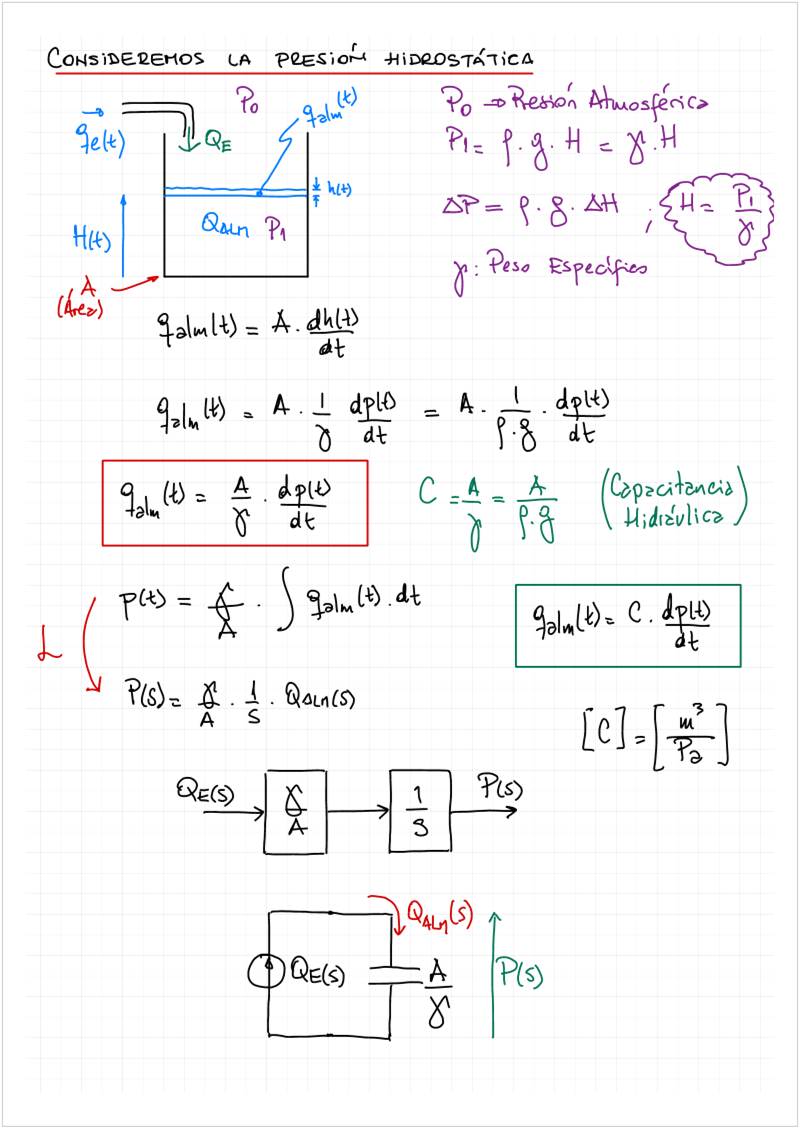 CONSIDEREMOS LA PRESIÓN HIDROSTÁTICA
qe(t)
QE
P₀
qalm(t)
h(t)
H(t)
QALM P₁
A
(Área)
P₀ → Presión Atmosférica
P₁ = ρ.g.H = γ.H
ΔP = ρ.g.ΔH ; H = P₁/γ
γ: Peso Específico
qalm(t) = A . dh(t)/dt
qalm(t) = A . 1/γ dp(t)/dt = A . 1/ρ.g . dp(t)/dt
qalm(t) = A/γ . dp(t)/dt
C = A/γ = A/ρ.g (Capacitancia
Hidráulica)
p(t) = γ/A . ∫ qalm(t).dt
qalm(t) = C . dp(t)/dt
L
P(s) = γ/A . 1/s . QALM(s)
[C] = [m³/Pa]
QE(s) γ/A 1/s P(s)
QALM(s)
QE(s) A/γ P(s)